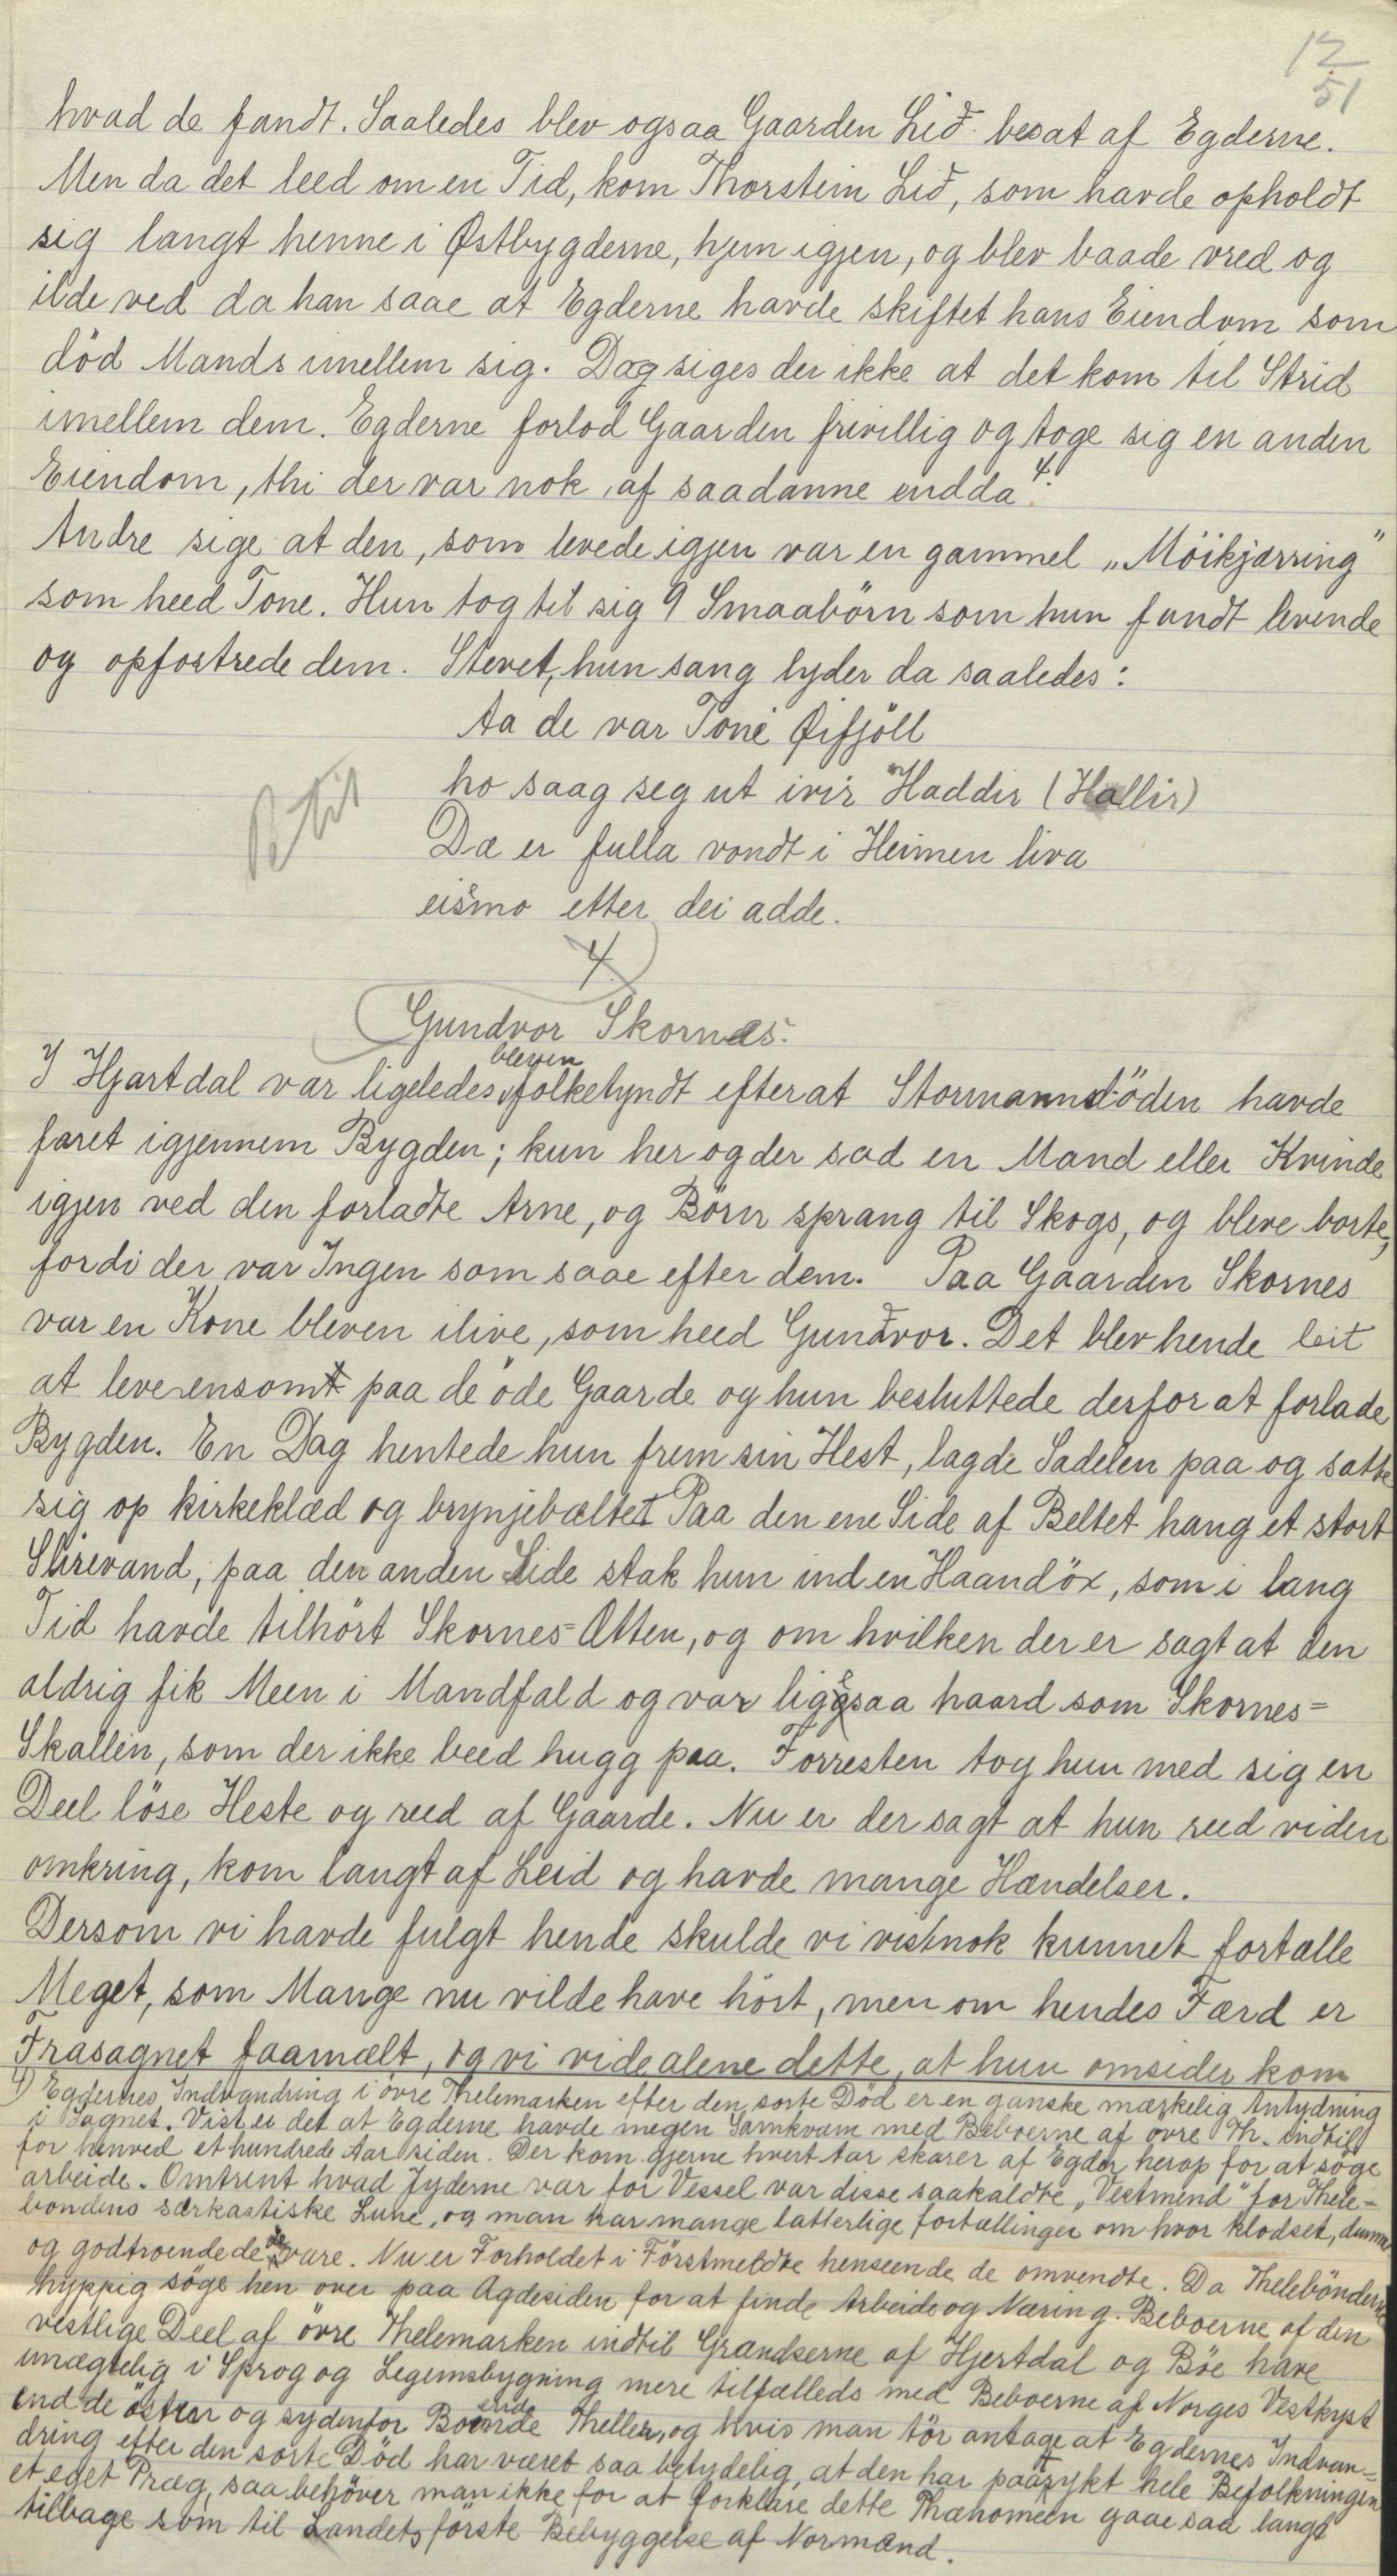 12
51
hvad de fandt. Saaledes blev ogsaa Gaarden Lið besat af Egderne.
Men da det leed om en Tid, kom Thorstein Lið, som havde opholdt
sig langt henne i Østbygderne, hjem igjen, og blev baade vred og
ilde ved da han saae at Egderne havde skiftet hans Eiendom som
död Mands imellem sig. Dog siges der ikke at det kom til Strid
imellem dem. Egderne forlod Gaarden frivillig og toge sig en anden
Eiendom, thi der var nok af saadanne endda 4.
Andre sige at den, som levede igjen var en gammel „Möikjærring”
som heed Tone. Hun tog til sig 9 Smaabörn som hun fandt levende
og opfostrede dem. Stevet, hun sang lyder da saaledes:
Aa de var Tone Øifjöll
ho saag seg ut ivir Haddir (Hallir)
Dæ er fulla vondt i Heimen liva
eismo etter dei adde.
4
Gundvor Skornæs.
bleven
I Hjartdal var ligeledes folketyndt efterat Stormannsdöden havde
faret igjennem Bygden; kun her og der sad en Mand eller Kvinde
igjen ved den forladte Arne, og Börn sprang til Skogs, og bleve borte,
fordi der var Ingen som saae efter dem. Paa Gaarden Skornes
var en Kone bleven ilive, som heed Gunðvor. Det blev hende leit
at leve ensomt paa de öde Gaarde og hun besluttede derfor at forlade
Bygden. En Dag hentede hun frem sin Hest, lagde Sadelen paa og satte
sig op kirkeklæd og brynjebæltet Paa den ene Side af Beltet hang et stort
Slirevand, paa den anden Side stak hun ind en Haandöx, som i lang
Tid havde tilhört Skornes=Ætten, og om hvilken der er sagt at den
aldrig fik Meen i Mandfald og var ligesaa haard som Skornes=
Skallen, som der ikke beed hugg paa. Forresten tog hun med sig en
Deel löse Heste og reed af Gaarde. Nu er der sagt at hun reed viden
omkring, kom langt af Leid og havde mange Hændelser.
Dersom vi havde fulgt hende skulde vi vistnok kunnet fortælle
Meget, som Mange nu vilde have hört, men om hendes Færd er
Frasagnet faamælt, og vi vide alene dette, at hun omsider kom
4) Egdernes Indvandring i övre Thelemarken efter den sorte Död er en ganske mærkelig Antydning
i Sagnet. Vist er det at Egderne havde megen Samkvam med Beboerne af övre Th. indtil
for henved et hundrede Aar siden. Der kom gjerne hvert Aar skarer af Egder herop for at söge
arbeide. Omtrent hvad Jyderne var for Vessel var disse saakaldte „Vestmend” for Thele=
bondens særkastiske Lune, og man har mange latterlige fortællinger om hvor klodset, dumme
og godtroende de vare. Nu er Forholdet i Förstmeldte henseende de omvendte. Da Thelebönderne
hyppig söge hen over paa Agdesiden for at finde Arbeide og Næring. Beboerne af den
vestlige Deel af övre Thelemarken indtil Grændserne af Hjertdal og Böe have
unægtelig i Sprog og Legemsbygning mere tilfælleds med Beboerne af Norges Vestkyst
end de östen og sydenfor Boende Theller, og hvis man tör antage at Egdernes Indvan=
dring efter den sorte Död har været saa betydelig, at den har paatrykt hele Befolkningen
et eget Præg, saa behöver man ikke for at forklare dette Phænomeen gaae saa langt
tilbage som til Landets förste Bebyggelse af Normænd.